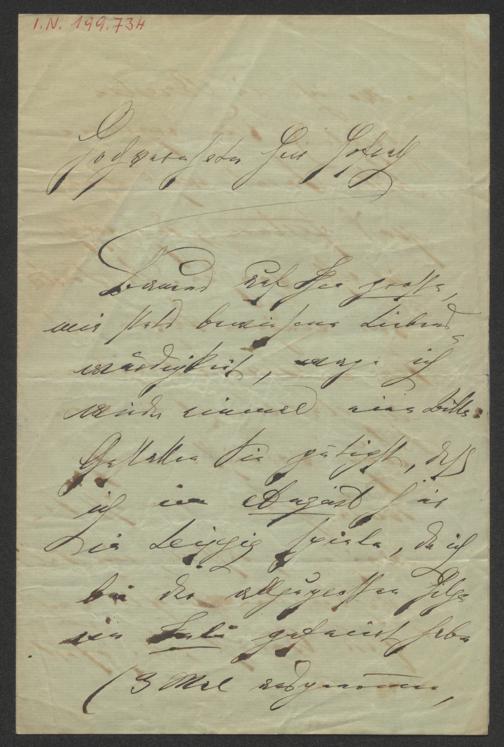 I.N. 199.734
Hochverehrter Herr Hofrath
Bauend auf Ihre grosse,
mir stets bewiesene Liebens-
würdigkeit, wage ich
wieder einmal eine Bitte.
Gestatten Sie gütigst, dass
ich im August hier
in Leipzig spiele, da ich
bei der allzugrossen Hitze
im Juli gefeiert habe
(3 Mal ausgenommen,